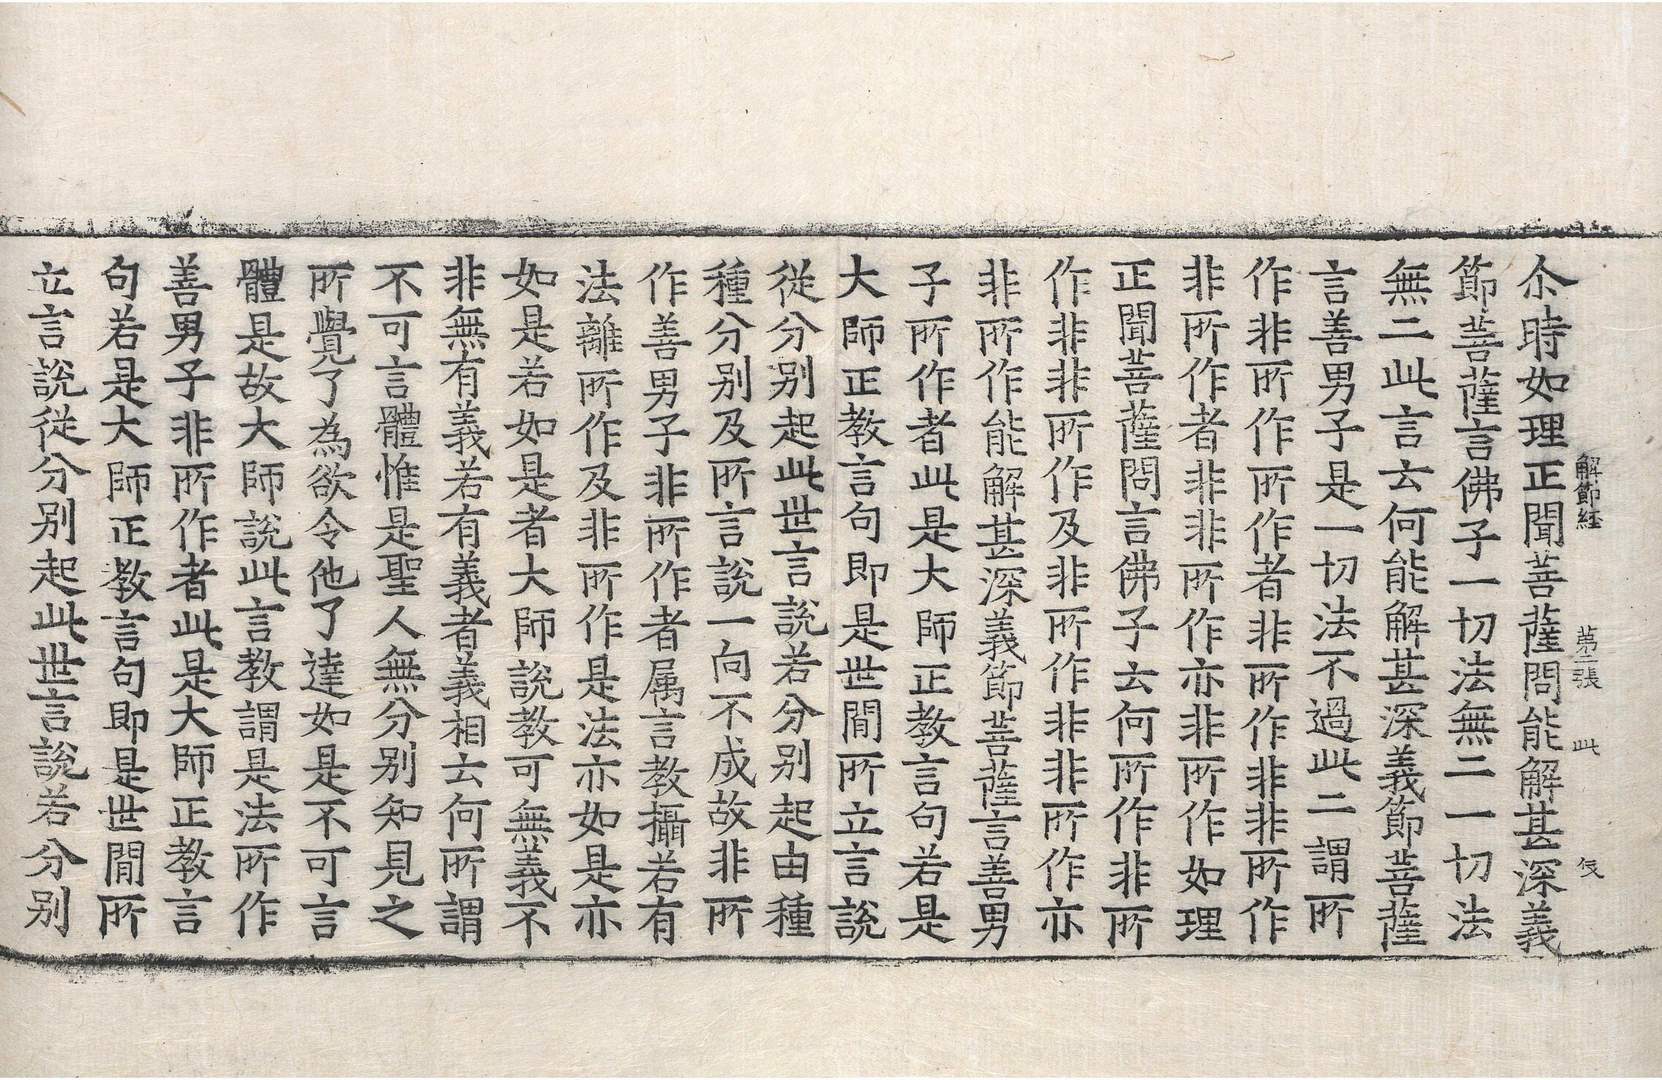 解節経 第二張 此
尒時如理正聞菩薩問能解甚深義
節菩薩言佛子一切法無二一切法
無二此言云何能解甚深義節菩薩
言善男子是一切法不過此二謂所
作非所作所作者非所作非非所作
非所作者非非所作亦非所作如理
正聞菩薩問言佛子云何所作非所
作非非所作及非所作非非所作亦
非所作能解甚深義節菩薩言善男
子所作者此是大師正教言句若是
大師正教言句即是世間所立言說
從分別起此世言說若分別起由種
種分別及所言說一向不成故非所
作善男子非所作者属言教攝若有
法離所作及非所作是法亦如是亦
如是若如是者大師說教可無義不
非無有義若有義者義相云何所謂
不可言體惟是聖人無分別知見之
所覺了為欲令他了達如是不可言
體是故大師說此言教謂是法所作
善男子非所作者此是大師正教言
句若是大師正教言句即是世間所
立言說從分別起此世言說若分別